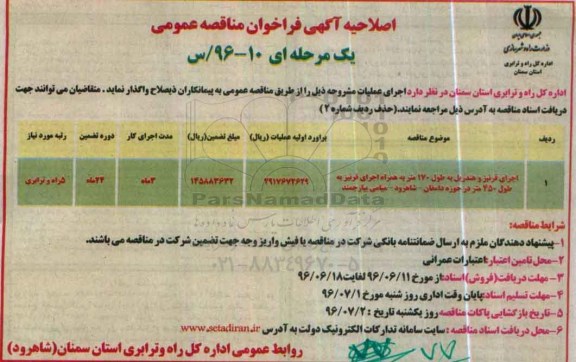 اصلاحیه آگهی فراخوان مناقصه عمومی
یک مرحله ای ۱۰-۹۶/س
وزارت راه و شهرسازی
اداره کل راه و ترابری
استان سمنان
اداره کل راه و ترابری استان سمنان در نظر دارد اجرای عملیات مشروحه ذیل را از طریق مناقصه عمومی به پیمانکاران ذیصلاح واگذار نماید . متقاضیان می توانند جهت
دریافت اسناد مناقصه به آدرس ذیل مراجعه نمایند.(حذف ردیف شماره ۲)
ردیف موضوع مناقصه براورد اولیه عملیات (ریال) مبلغ تضمین(ریال) مدت اجرای کار دوره تضمین رتبه مورد نیاز
۱ اجرای قرنیز و هندریل به طول ۲۷۰ متر به همراه اجرای قرنیز به ۲۹۱۷۶۷۲۶۲۹ ۱۴۵۸۸۳۶۳۲ ۳ماه ۲۴ماه ۵راه و ترابری
طول ۲۵۰ متر در حوزه دامغان - شاهرود - میامی بیارجمند
ParsNamadData
۰۲۱-۸۸۳۴۹۶۷۰-۵
شرایط مناقصه:
۱-پیشنهاد دهندگان ملزم به ارسال ضمانتنامه بانکی شرکت در مناقصه یا فیش واریز وجه جهت تضمین شرکت در مناقصه می باشند.
۲-محل تامین اعتبار:اعتبارات عمرانی
۳- مهلت دریافت(فروش)اسناد:از مورخ ۹۶/۰۶/۱۱ لغایت ۹۶/۰۶/۱۸
۴- مهلت تسلیم اسناد:پایان وقت اداری روز شنبه مورخ ۹۶/۰۷/۱
۵-تاریخ بازگشایی پاکات مناقصه روز یکشنبه تاریخ : ۹۶/۰۷/۲
۶-محل دریافت اسناد مناقصه :سایت سامانه تدارکات الکترونیک دولت به آدرس www.setadiran.ir
روابط عمومی اداره کل راه وترابری استان سمنان(شاهرود)